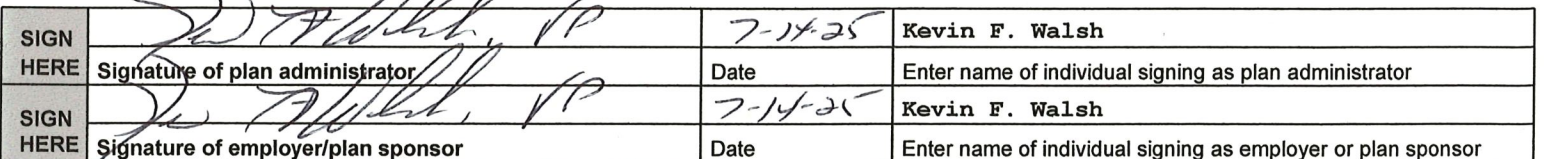 SIGN HERE
Walsh, VP 7-14-25 Kevin F. Walsh
Signature of plan administrator Date Enter name of individual signing as plan administrator
SIGN HERE
Walsh, VP 7-14-25 Kevin F. Walsh
Signature of employer/plan sponsor Date Enter name of individual signing as employer or plan sponsor